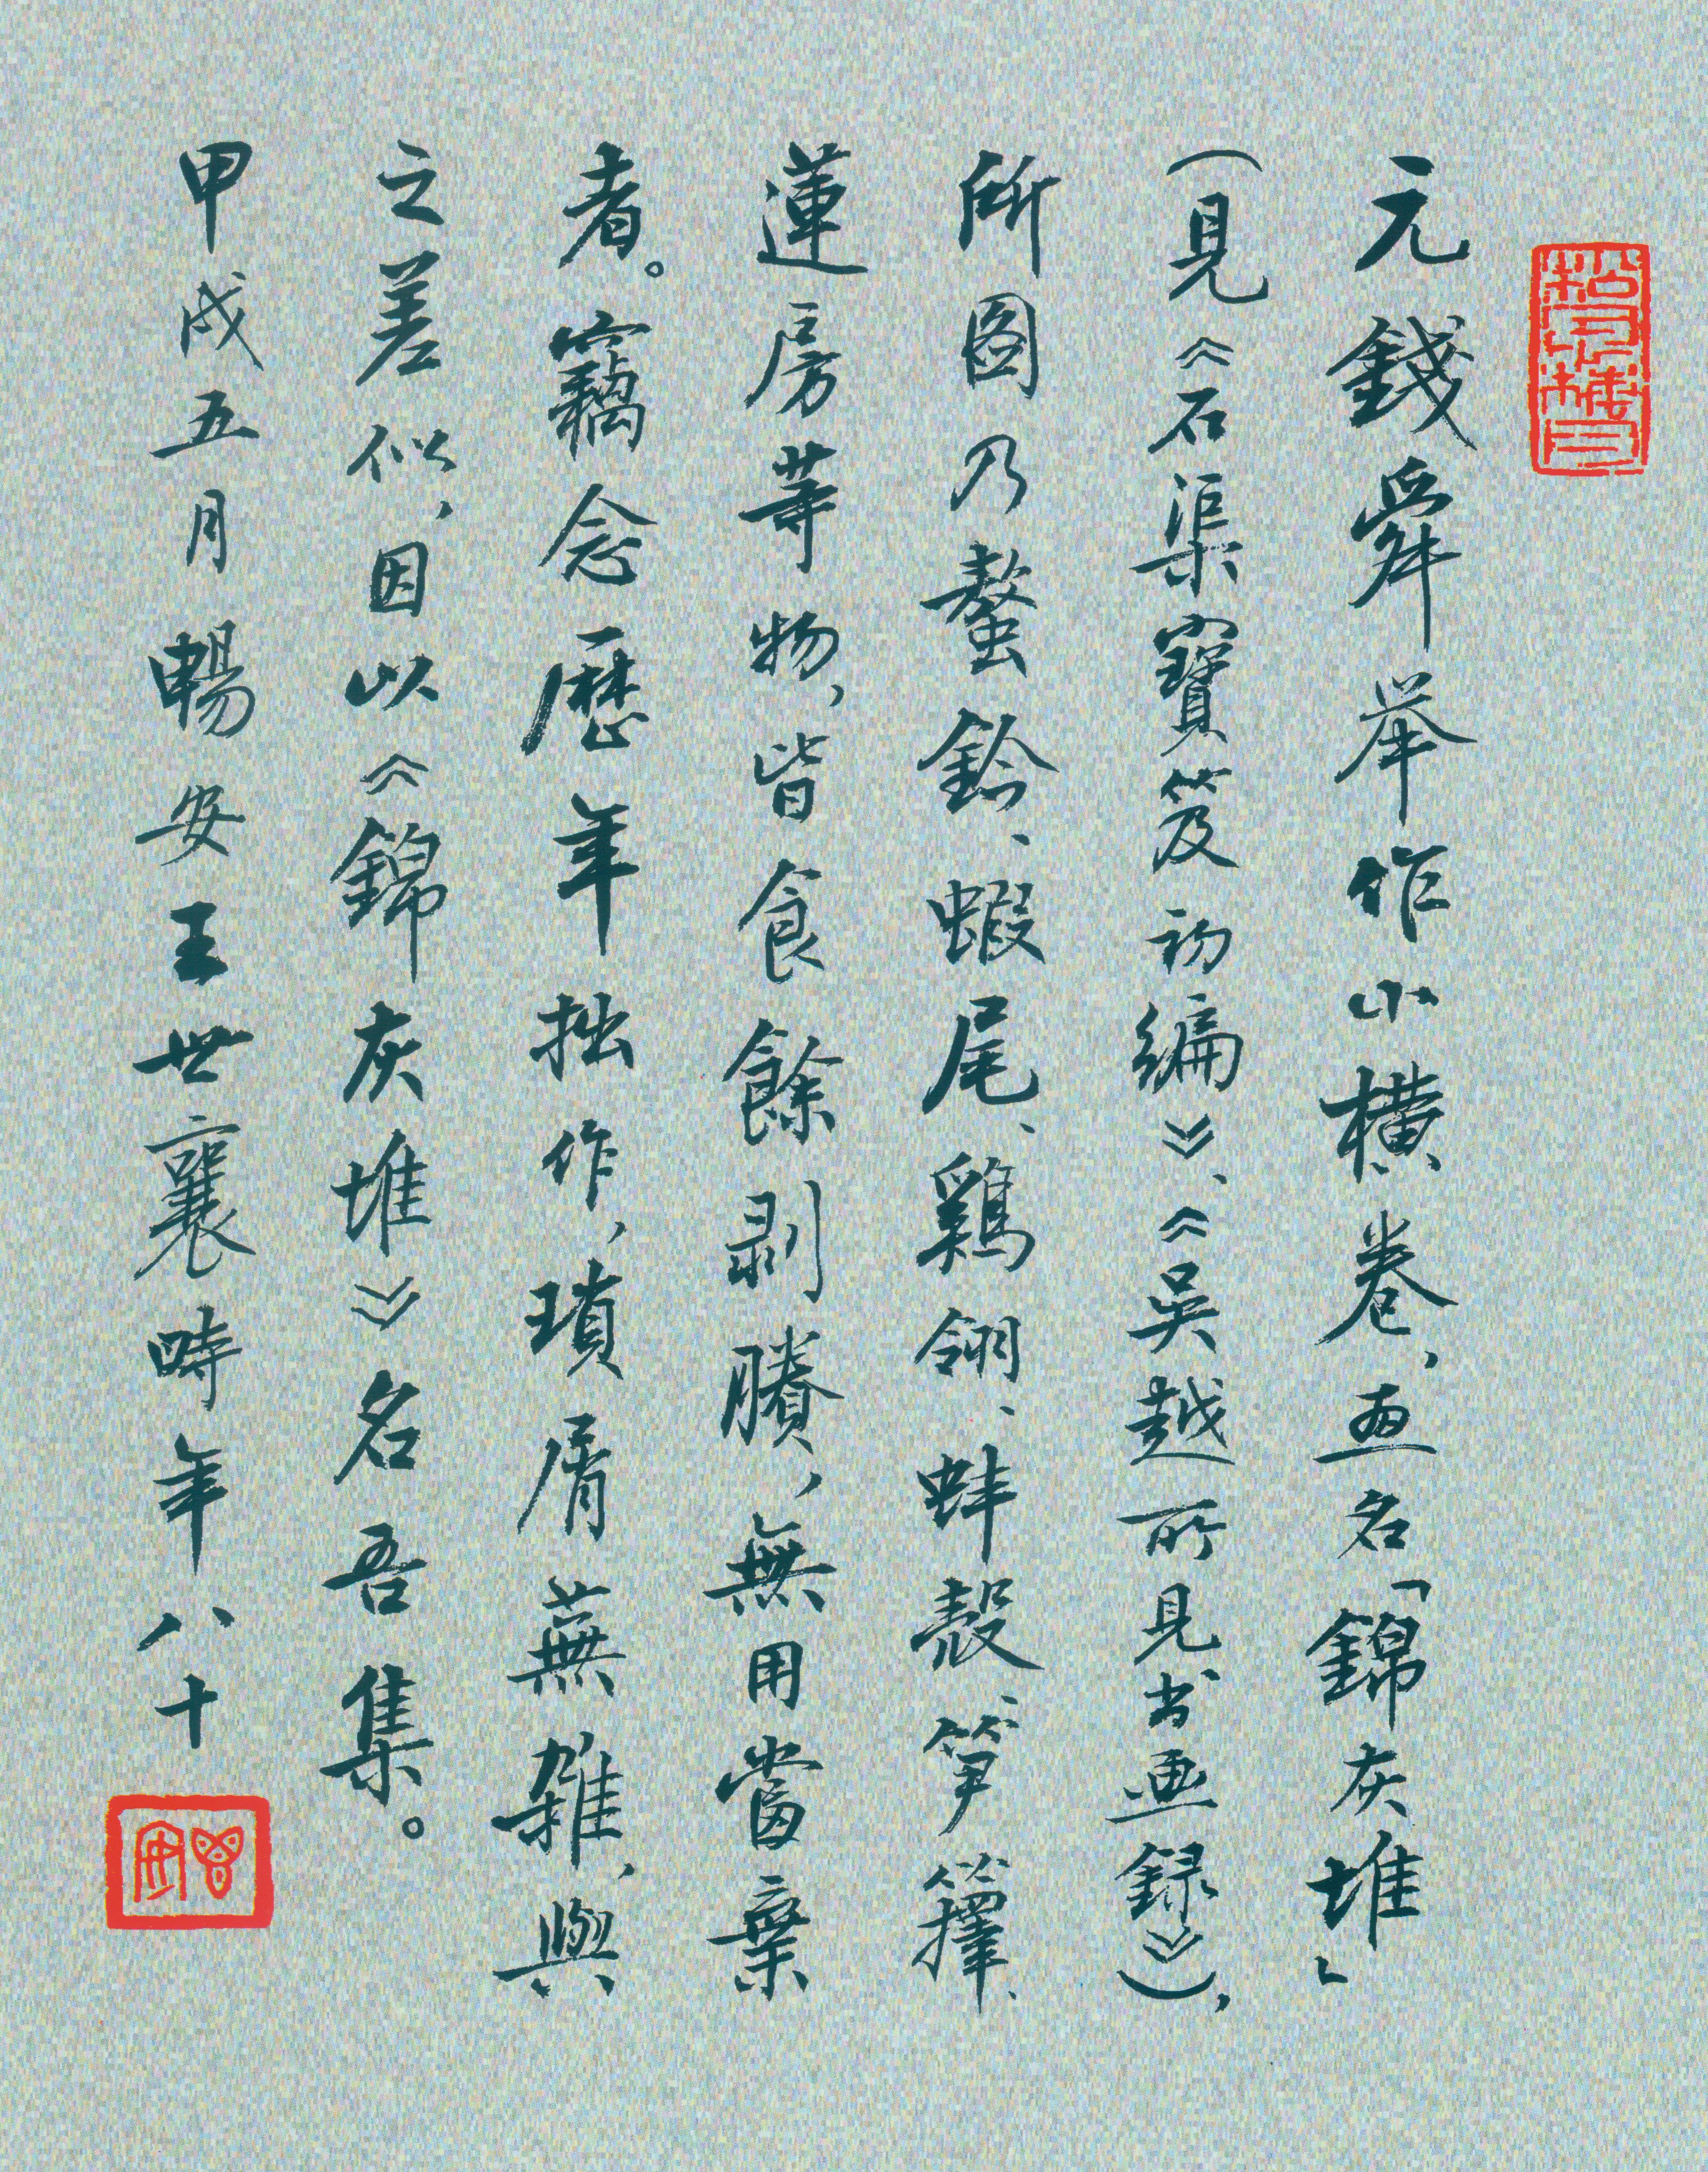 元錢舜举作小横卷，画名「錦灰堆」
（見《石渠寶笈初編》、《吳越所見书画録》），
所图乃螯鈐、蝦尾、鷄翎、蚌殼、笋籜、
蓮房等物，皆食餘剥賸，無用當棄
者。竊念歷年拙作，瑣屑蕪雜，與
之差似，因以《錦灰堆》名吾集。
甲戌五月暢安王世襄時年八十